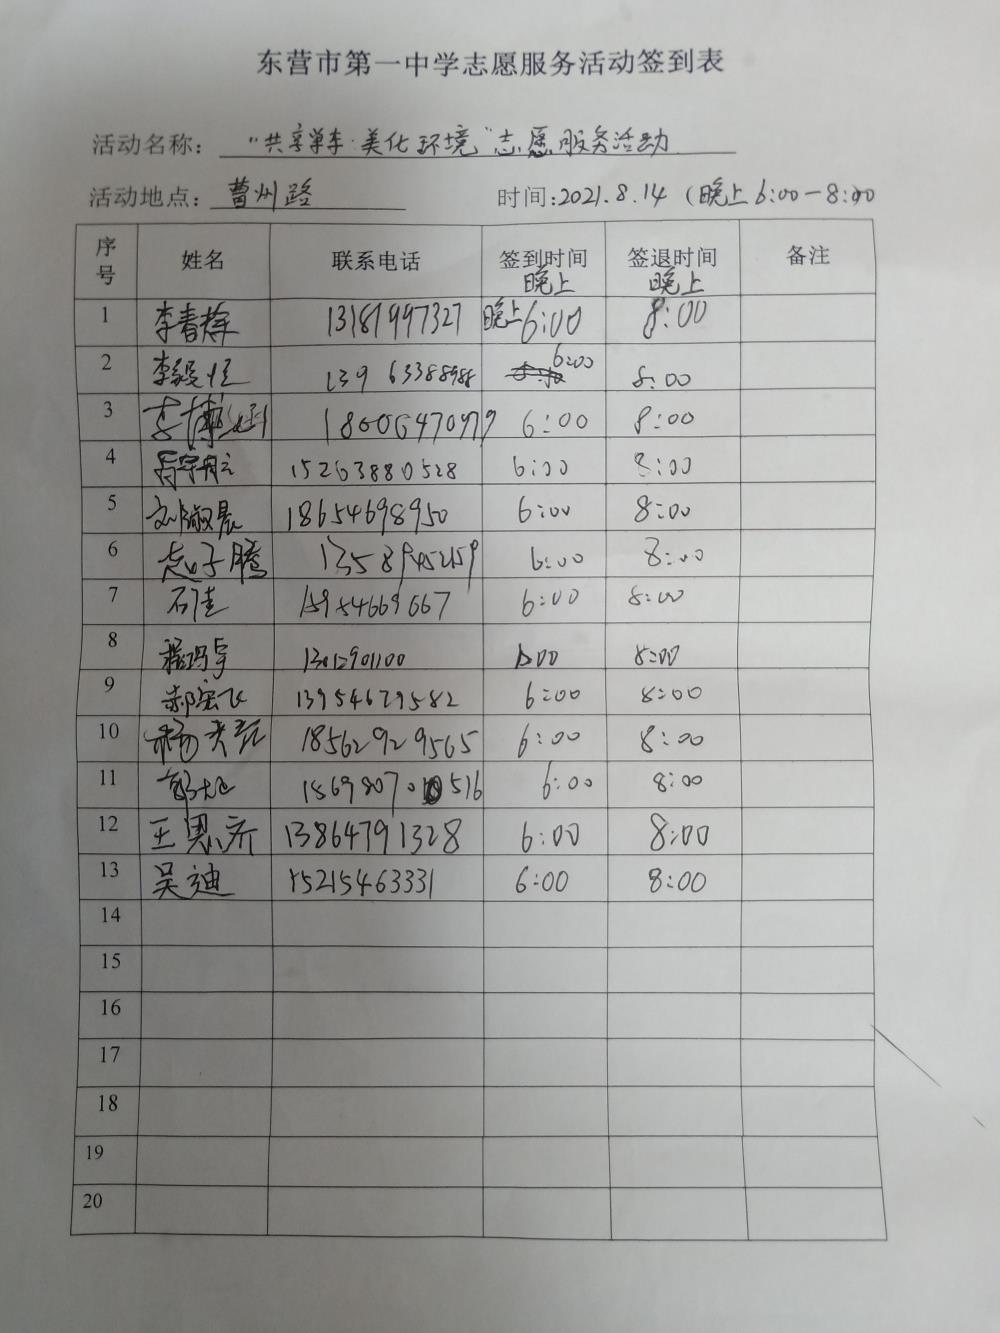 东营市第一中学志愿服务活动签到表
活动名称: "共享单车·美化环境"志愿服务活动
活动地点: 曹州路 时间:2021.8.14 (晚上6:00-8:00
序号 姓名 联系电话 签到时间 晚上 签退时间 晚上 备注
1 李春辉 13181997327 晚上6:00 8:00
2 李毅恒 139 63388988 6:00 8:00
3 李博涵 18606470979 6:00 8:00
4 15263880528 6:00 8:00
5 刘淑晨 18654698950 6:00 8:00
6 赵子腾 13589945259 6:00 8:00
7 石佳 15954669667 6:00 8:00
8 程玛宇 13012901100 8:00
9 郝宏飞 13954679582 6:00 8:00
10 杨 18562929565 6:00 8:00
11 6:00 8:00
12 王思齐 13864791328 6:00 8:00
13 吴迪 15215463331 6:00 8:00
14
15
16
17
18
19
20